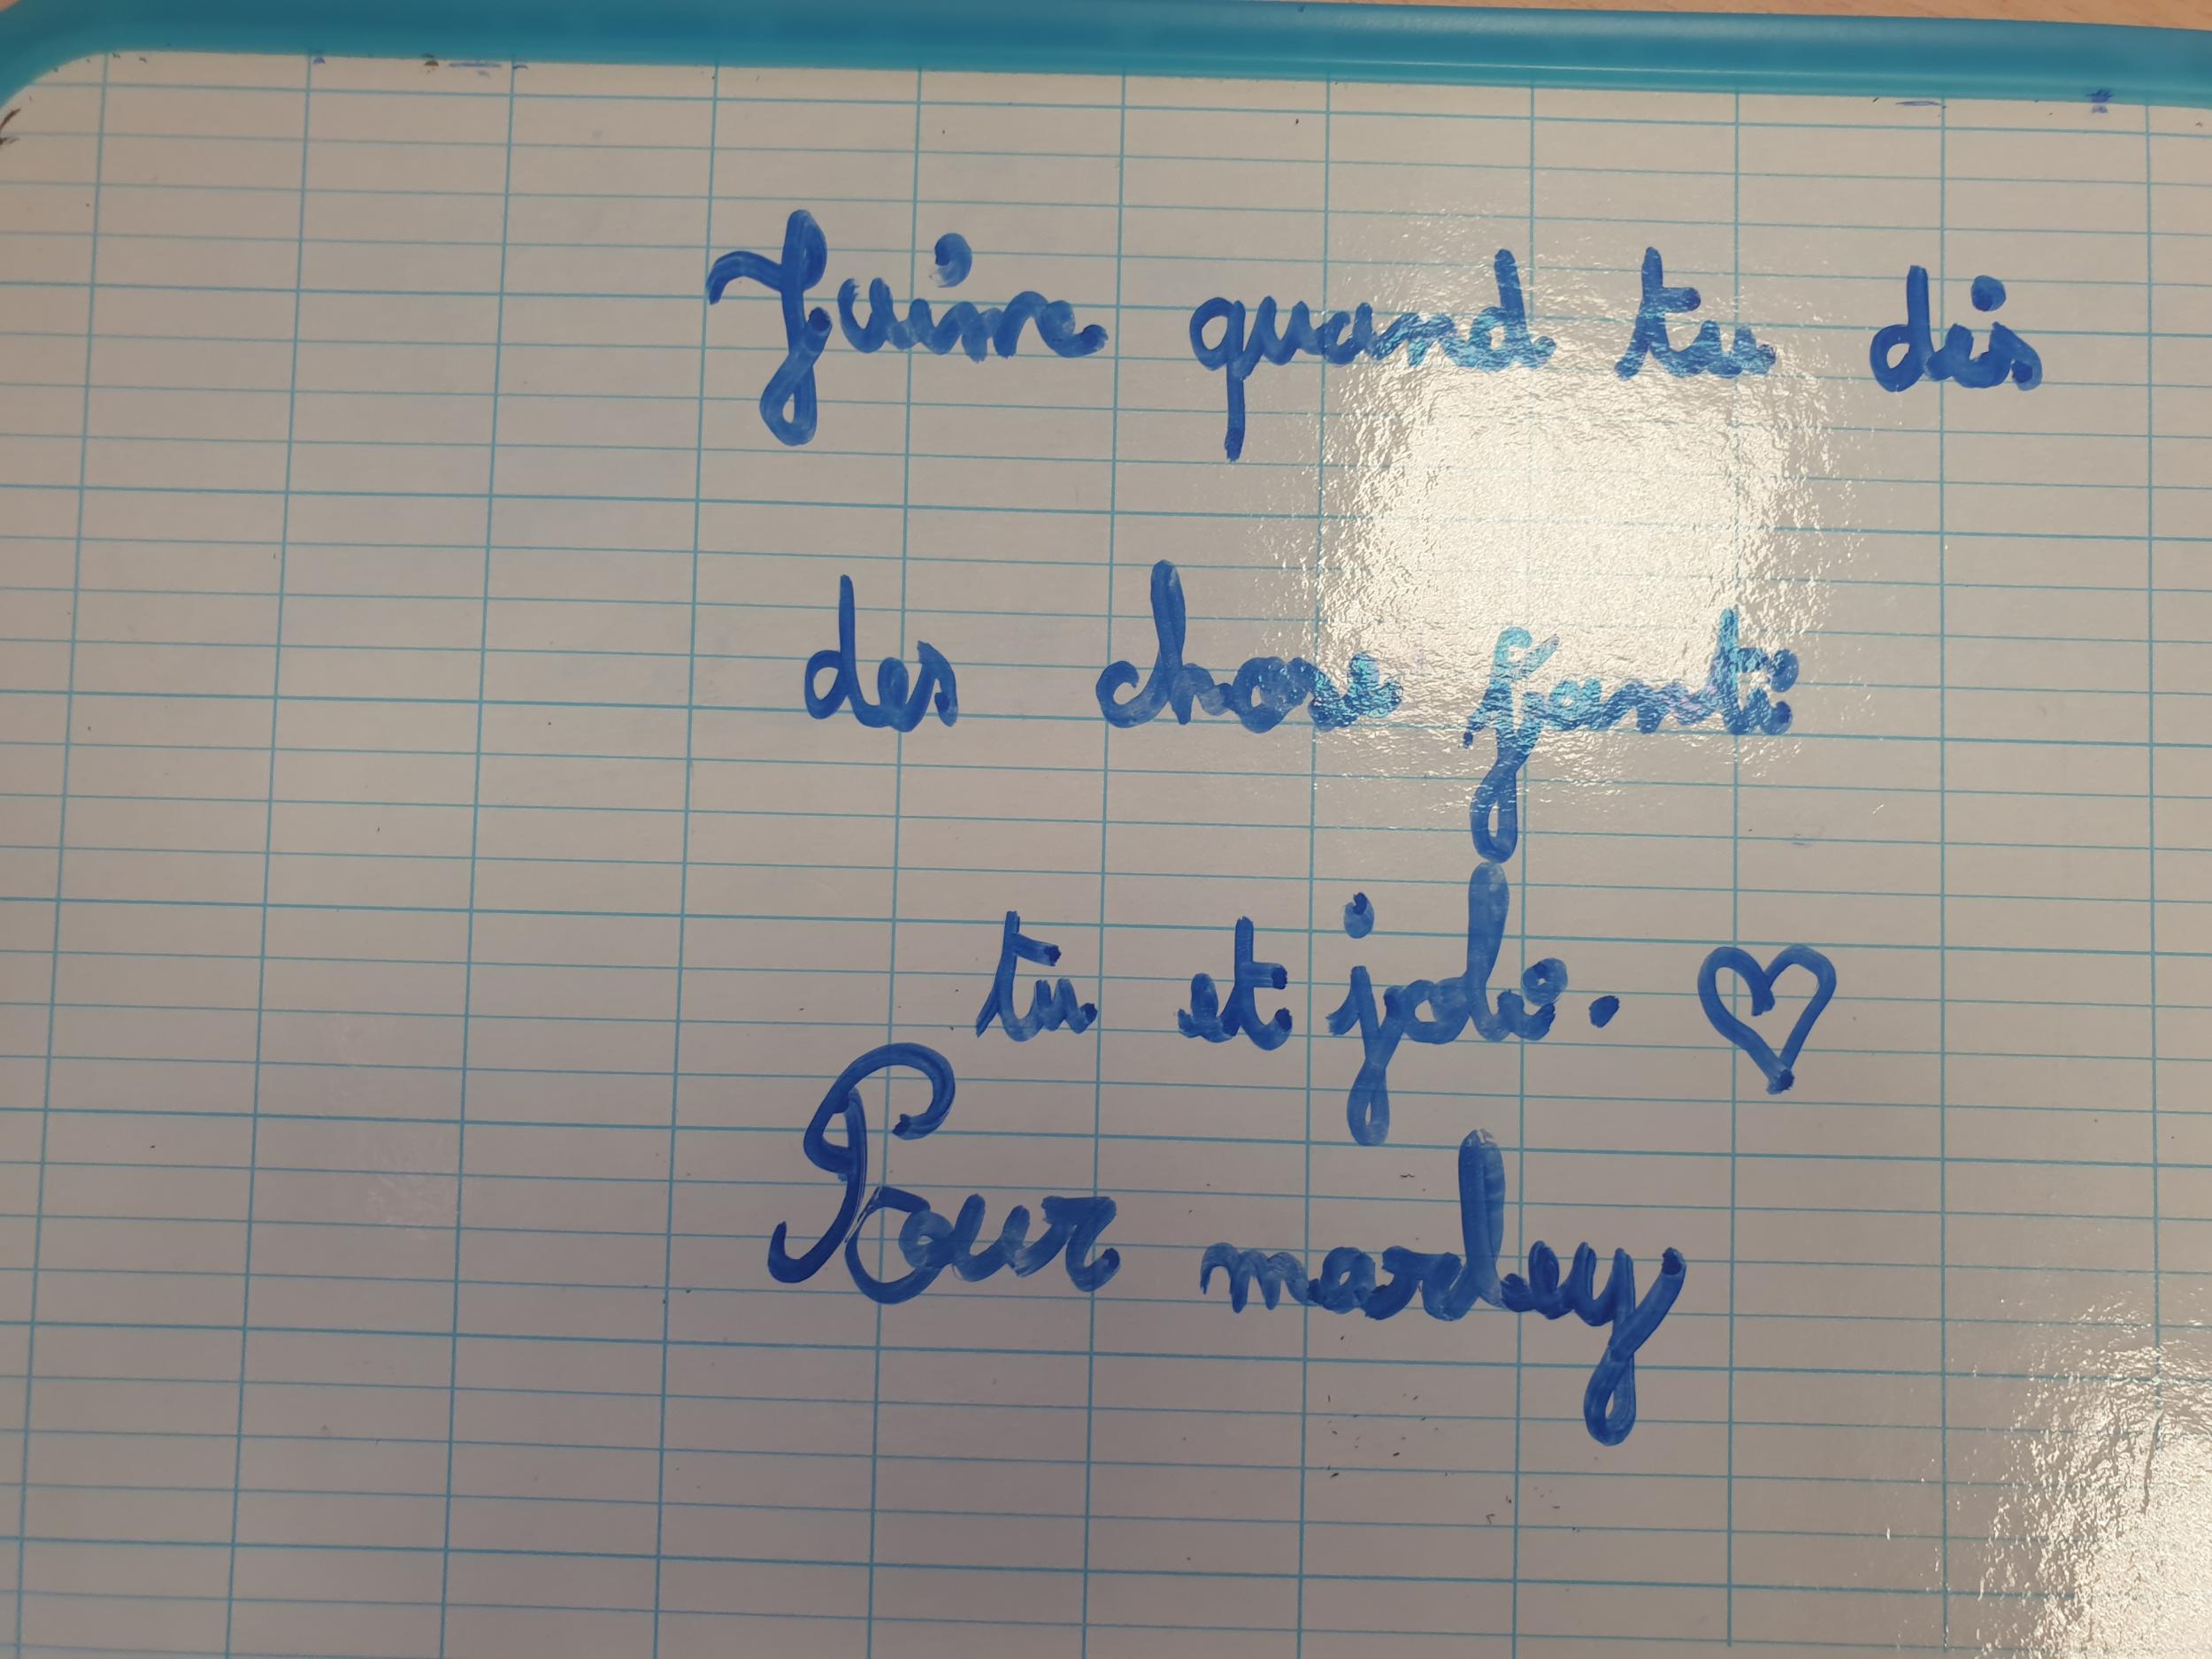 Jaime quand tu dis
des chose janti
tu et joli. ♡
Pour marley